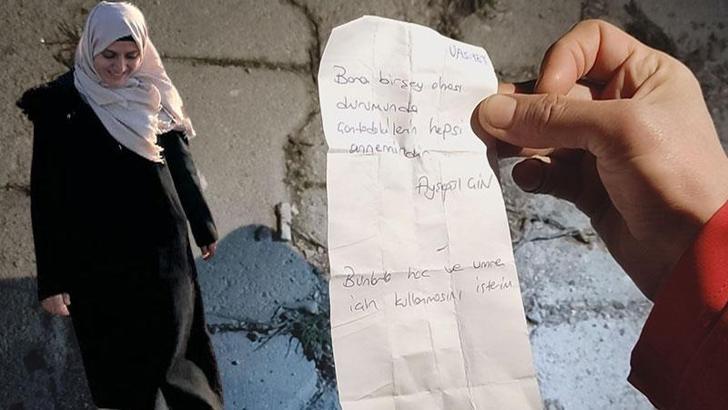 VASİYET
Bana birşey olması
durumunda
çantadakilerin hepsi
annemindir
Ayşegül GİN
hac ve umre
için kullanmasını isterim